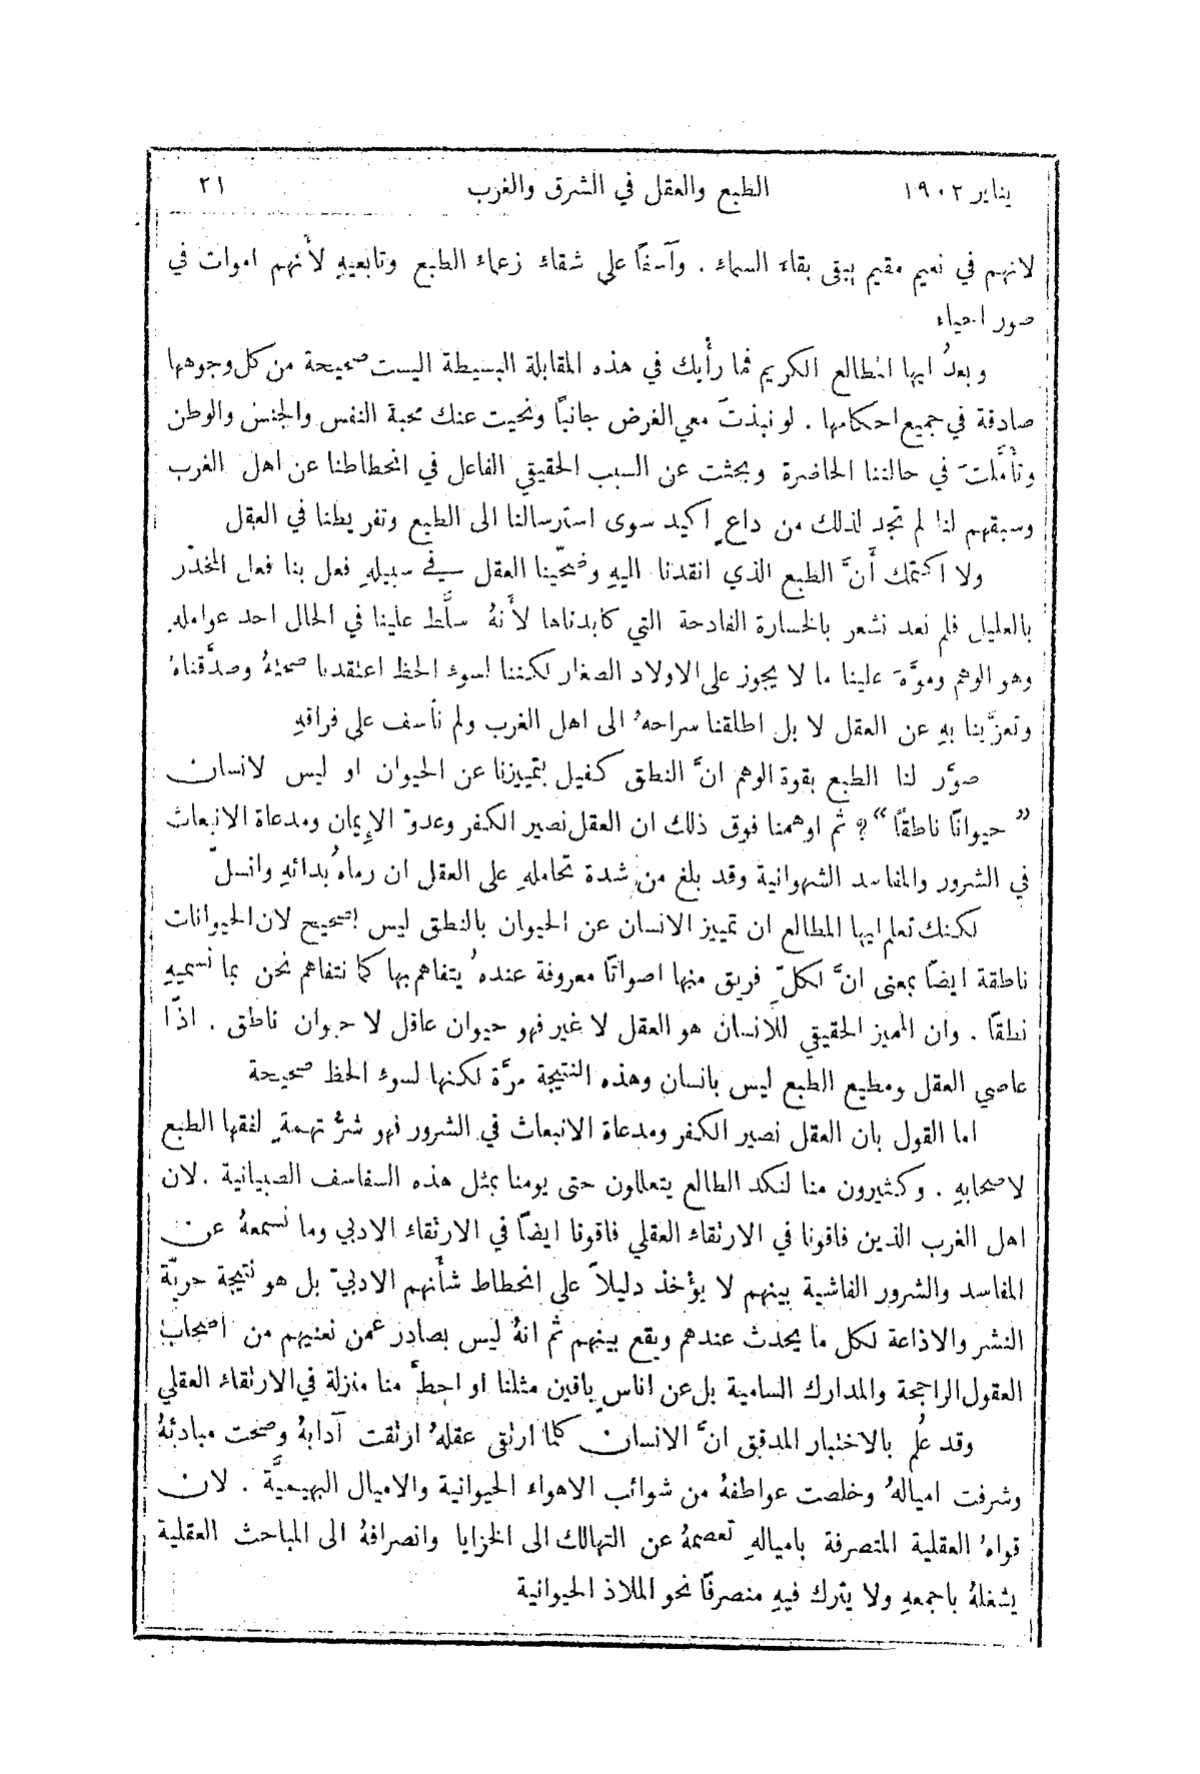 يناير ١٩٠٢ الطبع والعقل في الشرق والغرب ٢١
لانهم في نعيم مقيم يبقى بقاء السماء . وآسفًا على شقاء زعماء الطبع وتابعيهِ لأنهم اموات في
صور احياء
وبعدُ ايها المطالع الكريم فما رأْيك في هذه المقابلة البسيطة اليست صحيحة من كل وجوهها
صادقة في جميع احكامها . لو نبذتَ معي الغرض جانبًا ونحيت عنك محبة النفس والجنس والوطن
وتأْمَّلتَ في حالتنا الحاضرة وبحثت عن السبب الحقيقي الفاعل في انحطاطنا عن اهل الغرب
وسبقهم لنا لم تجد لذلك من داعٍ اكيد سوى استرسالنا الى الطبع وتفريطنا في العقل
ولا اكتمك أَنَّ الطبع الذي انقدنا اليهِ وضحّينا العقل في سبيلهِ فعل بنا فعل المخدّر
بالعليل فلم نعد نشعر بالخسارة الفادحة التي كابدناها لأَنهُ سلَّط علينا في الحال احد عواملهِ
وهو الوهم وموَّهَ علينا ما لا يجوز على الاولاد الصغار لكننا لسوء الحظ اعتقدنا صحتهُ وصدَّقناهُ
وتعزَّينا بهِ عن العقل لا بل اطلقنا سراحهُ الى اهل الغرب ولم نأسف على فراقهِ
صوَّر لنا الطبع بقوة الوهم انَّ النطق كفيل بتمييزنا عن الحيوان او ليس لانسان
” حيوانًا ناطقًا “ ؟ ثم اوهمنا فوق ذلك ان العقل نصير الكفر وعدوّ الإيمان ومدعاة الانبعاث
في الشرور والمفاسد الشهوانية وقد بلغ من شدة تحاملهِ على العقل ان رماهُ بدائهِ وانسلّ
لكنك تعلم ايها المطالع ان تمييز الانسان عن الحيوان بالنطق ليس بصحيح لان الحيوانات
ناطقة ايضًا بمعنى انَّ لكلِّ فريق منها اصواتًا معروفة عندهُ يتفاهم بها كما نتفاهم نحن بما نسميهِ
نطقًا . وان المميز الحقيقي للانسان هو العقل لا غير فهو حيوان عاقل لا حيوان ناطق . اذًا
عاصي العقل ومطيع الطبع ليس بانسان وهذه النتيجة مرَّة لكنها لسوء الحظ صحيحة
اما القول بان العقل نصير الكفر ومدعاة الانبعاث في الشرور فهو شرُّ تهمةٍ لفقها الطبع
لاصحابهِ . وكثيرون منا لنكد الطالع يتعللون حتى يومنا بمثل هذه السفاسف الصبيانية . لان
اهل الغرب الذين فاقونا في الارتقاء العقلي فاقونا ايضًا في الارتقاء الادبي وما نسمعهُ عن
المفاسد والشرور الفاشية بينهم لا يؤخذ دليلاً على انحطاط شأنهم الادبيّ بل هو نتيجة حريّة
النشر والاذاعة لكل ما يحدث عندهم ويقع بينهم ثم انهُ ليس بصادر عمن نعنيهم من اصحاب
العقول الراجحة والمدارك السامية بل عن اناسٍ باقين مثلنا او احطّ منا منزلة في الارتقاء العقلي
وقد عُلم بالاختبار المدقق انَّ الانسان كلما ارتقى عقلهُ ارتقت آدابهُ وصحت مبادئهُ
وشرفت اميالهُ وخلصت عواطفهُ من شوائب الاهواء الحيوانية والاميال البهيميَّة . لان
قواهُ العقلية المتصرفة باميالهِ تعصمهُ عن التهالك الى الخزايا وانصرافهُ الى المباحث العقلية
يشغلهُ باجمعهِ ولا يترك فيهِ منصرفًا نحو الملاذ الحيوانية